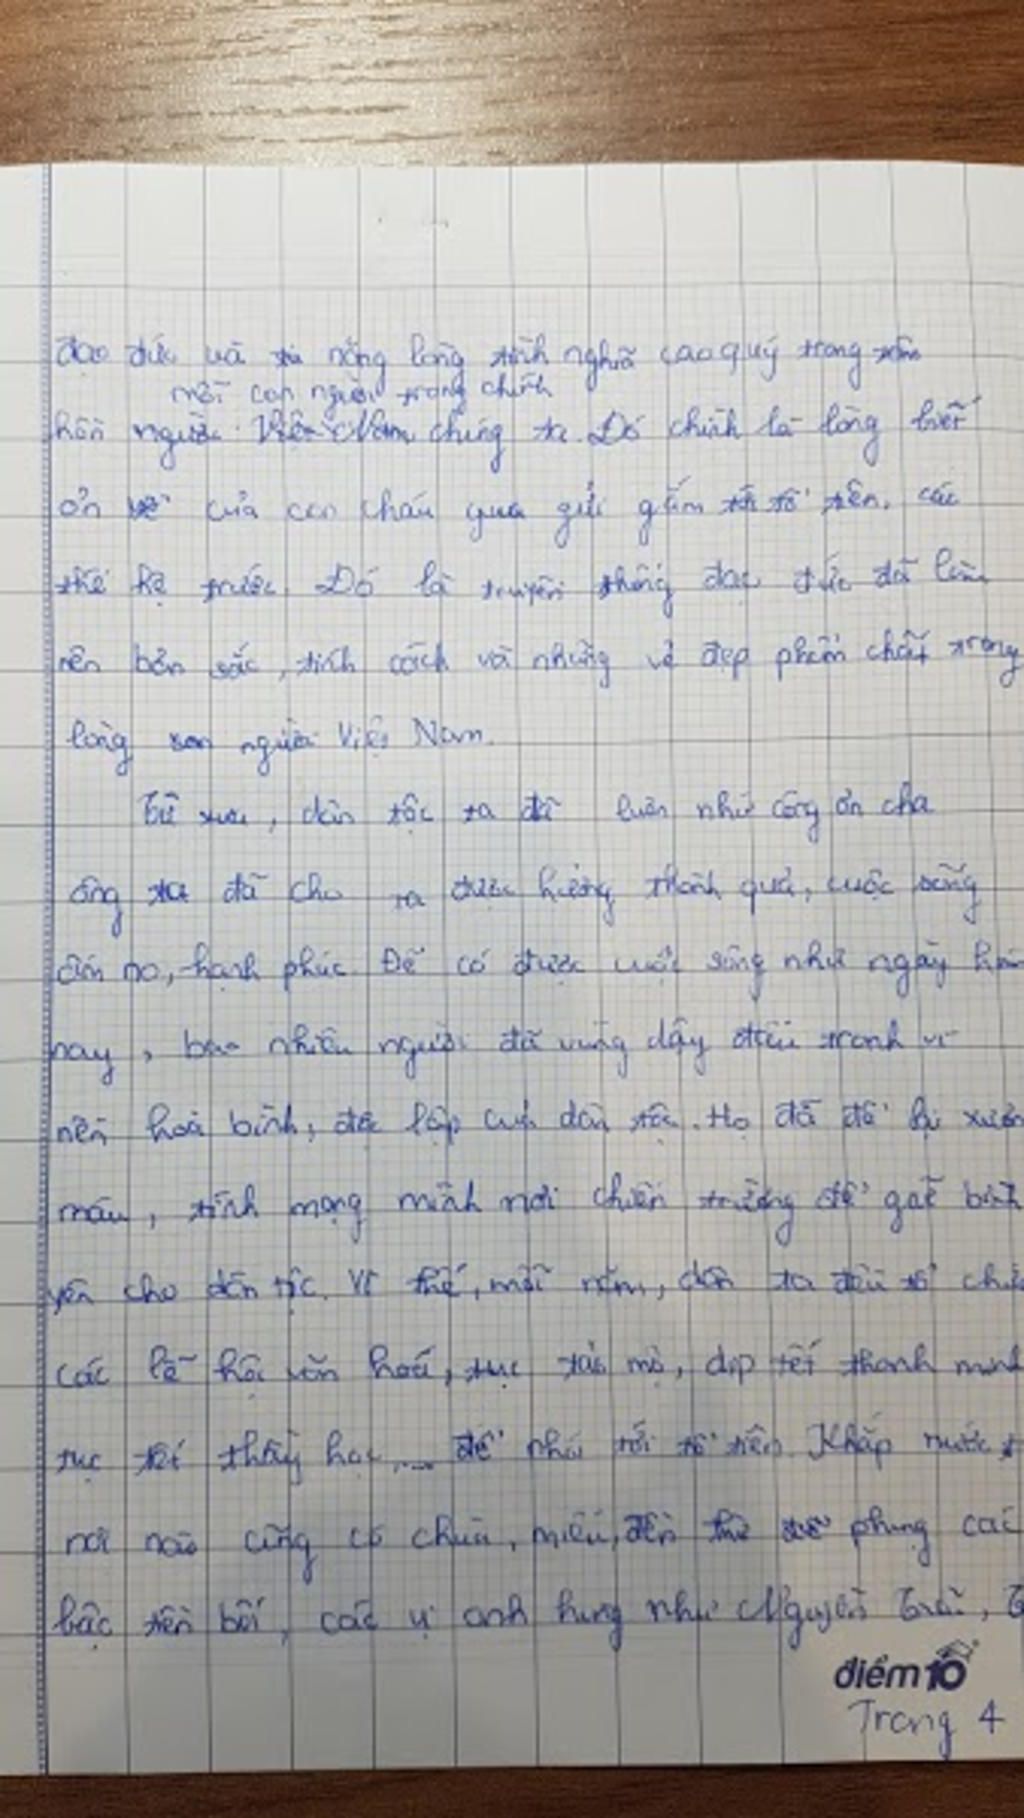 đạo đức và tấm lòng tình nghĩa cao quý trong tâm
mỗi con người trong chính
hồn người Việt Nam chúng ta. Đó chính là lòng biết
ơn của con cháu gửi gắm tới tổ tiên, các
thế hệ trước. Đó là truyền thống đạo đức đã làm
nên bản sắc, tính cách và những vẻ đẹp phẩm chất trong
lòng người Việt Nam.
Từ xưa, dân tộc ta đã luôn nhớ công ơn cha
ông ta đã cho ta được hưởng thành quả, cuộc sống
ấm no, hạnh phúc. Để có được cuộc sống như ngày hôm
nay, bao nhiêu người đã vùng dậy đấu tranh vì
nền hoà bình, độc lập của dân tộc. Họ đã để lại xương
máu, tính mạng mình nơi chiến trường để gìn bình
yên cho dân tộc. Vì thế, mỗi năm, dân ta đều tổ chức
các lễ hội văn hoá, tục tảo mộ, dịp tết thanh minh
tục tết thầy học,... để nhớ tới tổ tiên. Khắp nước,
nơi nào cũng có chùa, miếu, đền thờ phụng các
bậc tiền bối, các vị anh hùng như Nguyễn Trãi,
điểm 10
Trang 4